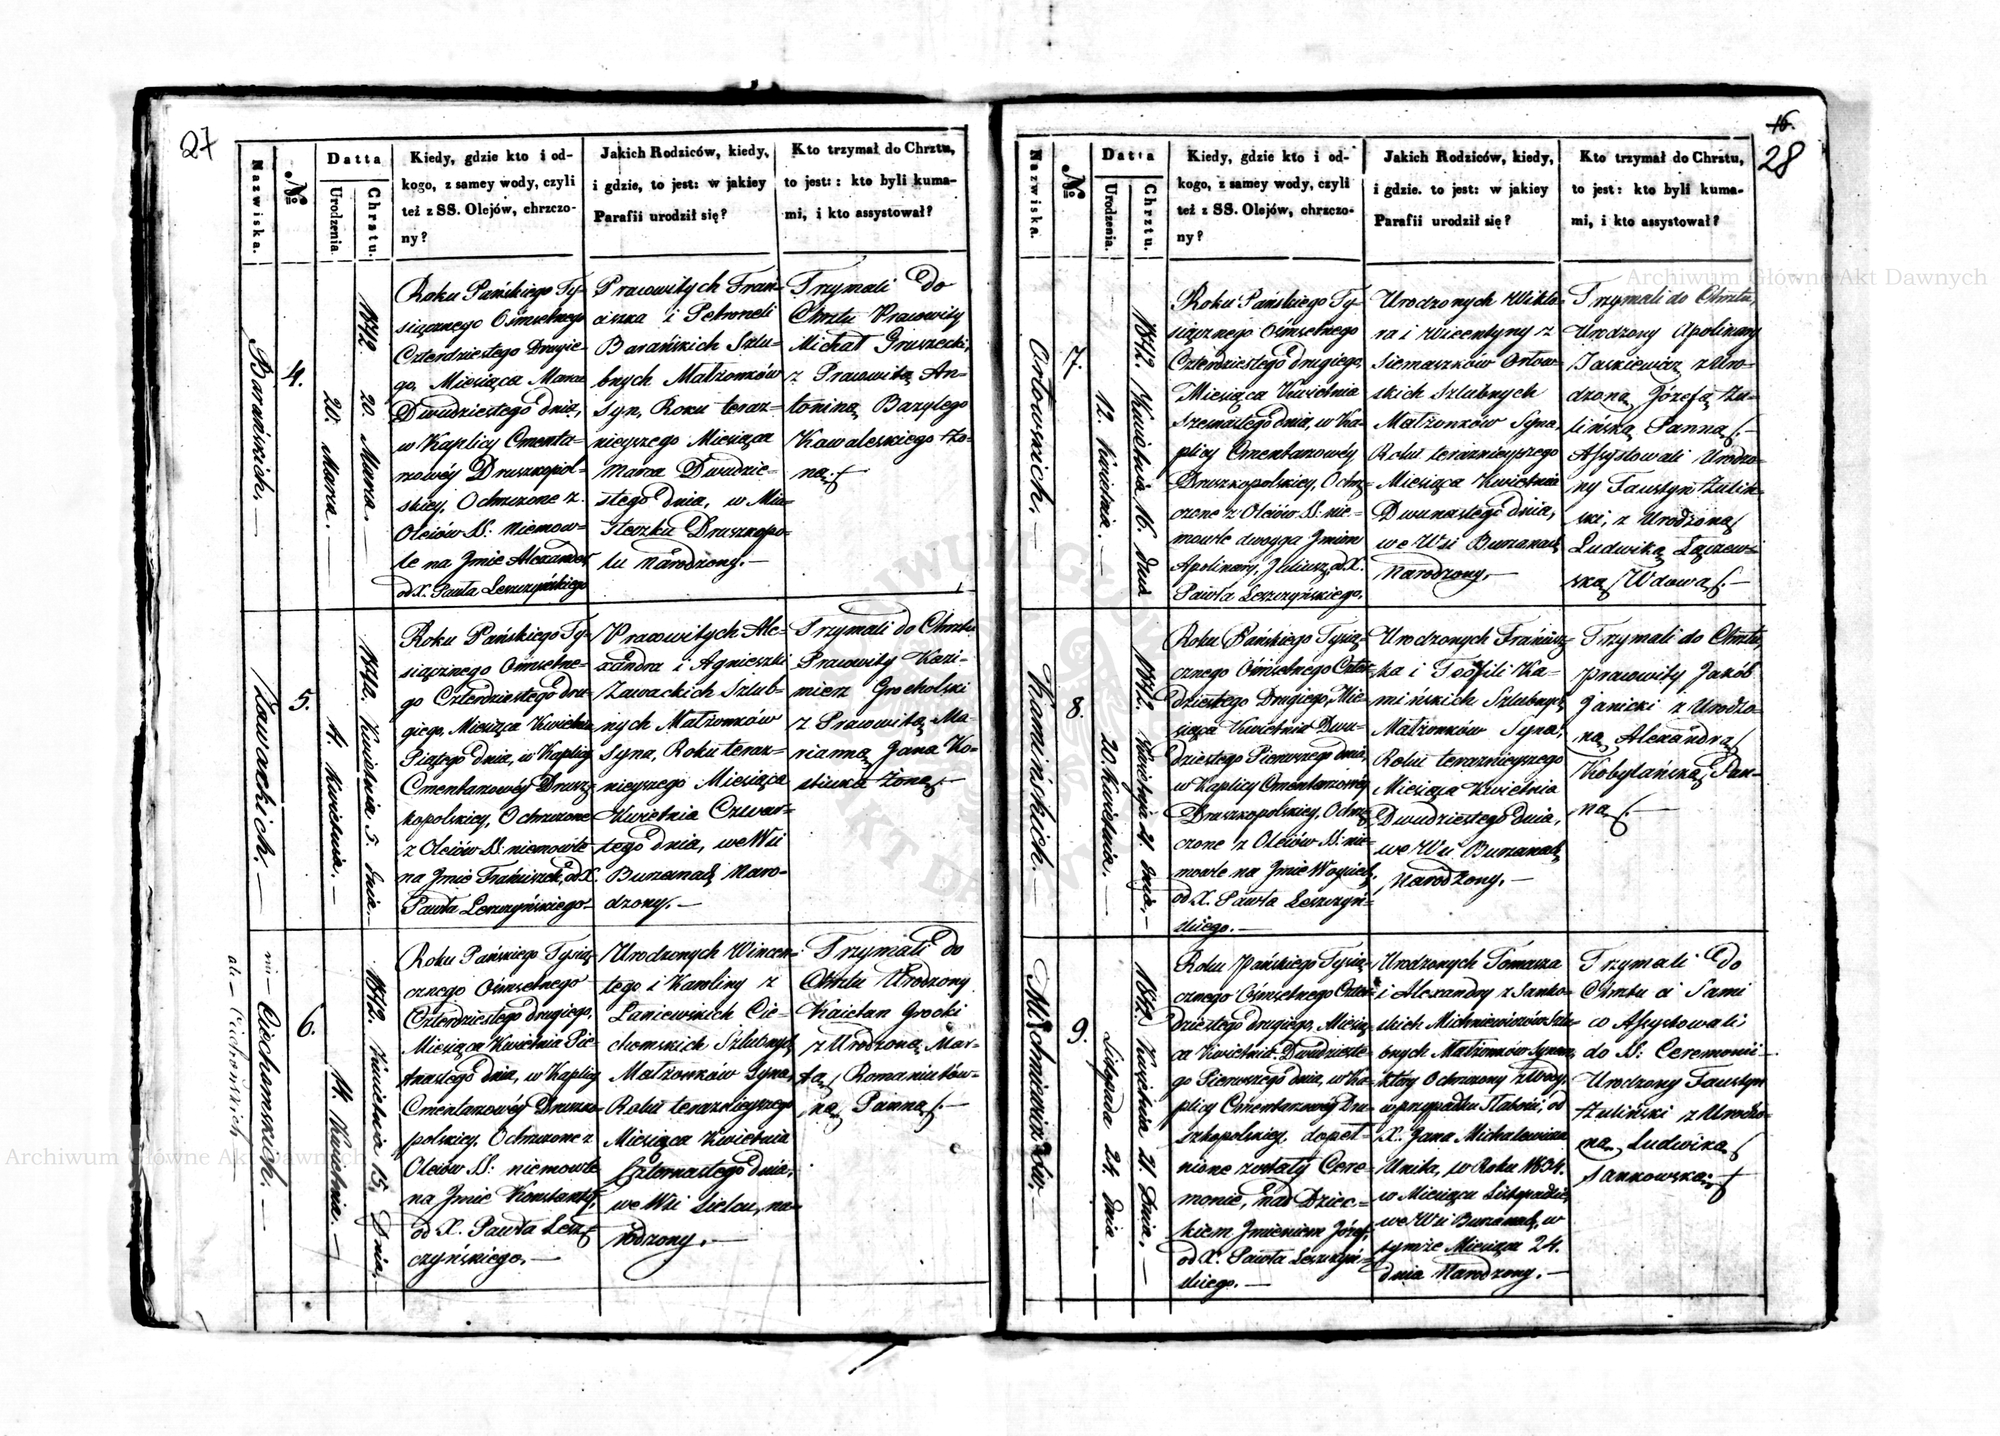 27
Nazwiska.
№
Datta
Urodzenia.
Chrztu.
Kiedy, gdzie kto i od-
kogo, z samey wody, czyli
też z SS. Olejów, chrzczo-
ny?
Jakich Rodziców, kiedy,
i gdzie, to jest: w jakiey
Parafii urodził się?
Kto trzymał do Chrztu,
to jest: : kto byli kuma-
mi, i kto assystował?
Barańskich. —
4.
20. Marca.
1842. 20. Marca. —
Roku Pańskiego Ty-
siącznego Ośmsetnego
Czterdziestego Drugie-
go, Miesiąca Marca
Dwudziestego dnia,
w Kaplicy Cmenta-
rzowéy Druszkopol-
skiey, Ochrzczone z
Oleiów SS. niemow-
le na Jmie Alexander,
od X. Pawła Leszczyńskiego
Pracowitych Fran-
ciszka i Petroneli
Barańskich Szlu-
bnych Małżonków
Syn, Roku teraz-
nieyszego Miesiąca
Marca Dwudzie-
stego dnia, w Mia-
steczku Druszkopo-
lu narodzony. —
Trzymali do
Chrztu Pracowity
Michał Gruszecki,
z Pracowitą An-
toniną Bazylego
Kowaleskiego Żo-
ną.
Zawackich. —
5.
4. Kwietnia. —
1842. Kwietnia 5. dnia. —
Roku Pańskiego Ty-
siącznego Ośmsetne-
go Czterdziestego dru-
giego, Miesiąca Kwietnia
Piątego dnia, w Kaplicy
Cmentarzowéy Drusz-
kopolskiey, Ochrzczone
z Oleiów SS. niemowle
na Jmie Franciszek, od X.
Pawła Leszczyńskiego
Pracowitych Ale-
xandra i Agnieszki
Zawackich Szlub-
nych Małżonków
Syna, Roku teraz-
nieyszego Miesiąca
Kwietnia Czwar-
tego dnia, we Wsi
Burzanach Naro-
dzony. —
Trzymali do Chrztu
Pracowity Kazi-
mierz Grocholski
z Pracowitą Ma-
rianną Jana Ko-
stiuka Żoną —
nie — Ciechomskich. —
ale — Cichońskich
6.
14. Kwietnia. —
1842. Kwietnia 15. Dnia. —
Roku Pańskiego Tysią-
cznego Ośmsetnego
Czterdziestego drugiego,
Miesiąca Kwietnia Pię-
tnastego dnia, w Kaplicy
Cmentarzowéy Druszko-
polskiey, Ochrzczone z
Oleiów SS. niemowle
na Jmie Konstanty,
od X. Pawła Lesz-
czyńskiego. —
Urodzonych Wincen-
tego i Karoliny z
Laniewskich Cie-
chomskich Szlubnych
Małżonków Syna,
Roku teraznieyszego
Miesiąca Kwietnia
Czternastego dnia,
we Wsi Lielou, na-
rodzony. —
Trzymali do
Chrztu Urodzony
Kaietan Grocki
z Urodzoną Mar-
tą Romaniutów-
ną Panną. —
16.
28
Nazwiska.
№
Datta
Urodzenia.
Chrztu.
Kiedy, gdzie kto i od-
kogo, z samey wody, czyli
też z SS. Olejów, chrzczo-
ny?
Jakich Rodziców, kiedy,
i gdzie. to jest: w jakiey
Parafii urodził się?
Kto trzymał do Chrztu,
to jest: kto byli kuma-
mi, i kto assystował?
Orłowskich. —
7.
12. Kwietnia. —
1842. Kwietnia 16. dnia
Roku Pańskiego Ty-
siącznego Ośmsetnego
Czterdziestego drugiego,
Miesiąca Kwietnia
Szesnastego dnia, w Ka-
plicy Cmentarzowéy
Druszkopolskiey, Ochrz-
czone z Oleiów SS. nie-
mowle dwoyga Jmion
Apolinary, Juliusz, od X.
Pawła Leszczyńskiego.
Urodzonych Wikto-
ra i Wicentyny z
Siemaszków Orłow-
skich Szlubnych
Małżonków Syna,
Roku teraznieyszego
Miesiąca Kwietnia
Dwunastego dnia,
we Wsi Burzanach
Narodzony. —
Trzymali do Chrztu,
Urodzony Apolinary
Jaskiewicz z Uro-
dzoną Józefą Żu-
lińską Panną. —
Assystowali Urodzo-
ny Faustyn Żuliń-
ski, z Urodzoną
Ludwiką Łączew-
ską Wdową. —
Kamińskich. —
8.
20. Kwietnia. —
1842. Kwietnia 21. dnia. —
Roku Pańskiego Tysią-
cznego Ośmsetnego Czter-
dziestego Drugiego, Mie-
siąca Kwietnia Dwu-
dziestego Pierwszego dnia,
w Kaplicy Cmentarzowéy
Druszkopolskiey, Ochrz-
czone z Oleiów SS. nie-
mowle na Jmie Woyciech,
od X. Pawła Leszczyń-
skiego. —
Urodzonych Francisz-
ka i Teofili Ka-
mińskich Szlubnych
Małżonków Syna,
Roku teraznieyszego
Miesiąca Kwietnia
Dwudziestego dnia,
we Wsi Burzanach
Narodzony. —
Trzymali do Chrztu,
Pracowity Jakób
Janicki z Urodzo-
ną Alexandrą
Kobylańską Pan-
ną. —
Michniewiczów. —
9.
Listopada 24. dnia
1842. Kwietnia 21. Dnia. —
Roku Pańskiego Tysią-
cznego Ośmsetnego Czter-
dziestego drugiego, Miesią-
ca Kwietnia Dwudzieste-
go Pierwszego dnia, w Ka-
plicy Cmentarzowéy Dru-
szkopolskiey, dopeł-
nione zostały Cere-
monie, nad Dziec-
kiem Jmieniem Józef,
od X. Pawła Leszczyń-
skiego. —
Urodzonych Tomasza
i Alexandry z Janko-
skich Michniewiczów Szlu-
bnych Małżonków Synem,
który Ochrzczony z Wody,
w przypadku słabości, od
X. Jana Michalewicza
Unita, w Roku 1834.
w Miesiącu Listopadzie,
we Wsi Burzanach, w
tymże Miesiącu 24.
dnia Narodzony. —
Trzymali do
Chrztu ci Sami
co Assystowali,
do SS. Ceremonii —
Urodzony Faustyn
Żuliński z Urodzo-
ną Ludwiką
Jankowską.
Archiwum Główne Akt Dawnych
Archiwum Główne Akt Dawnych